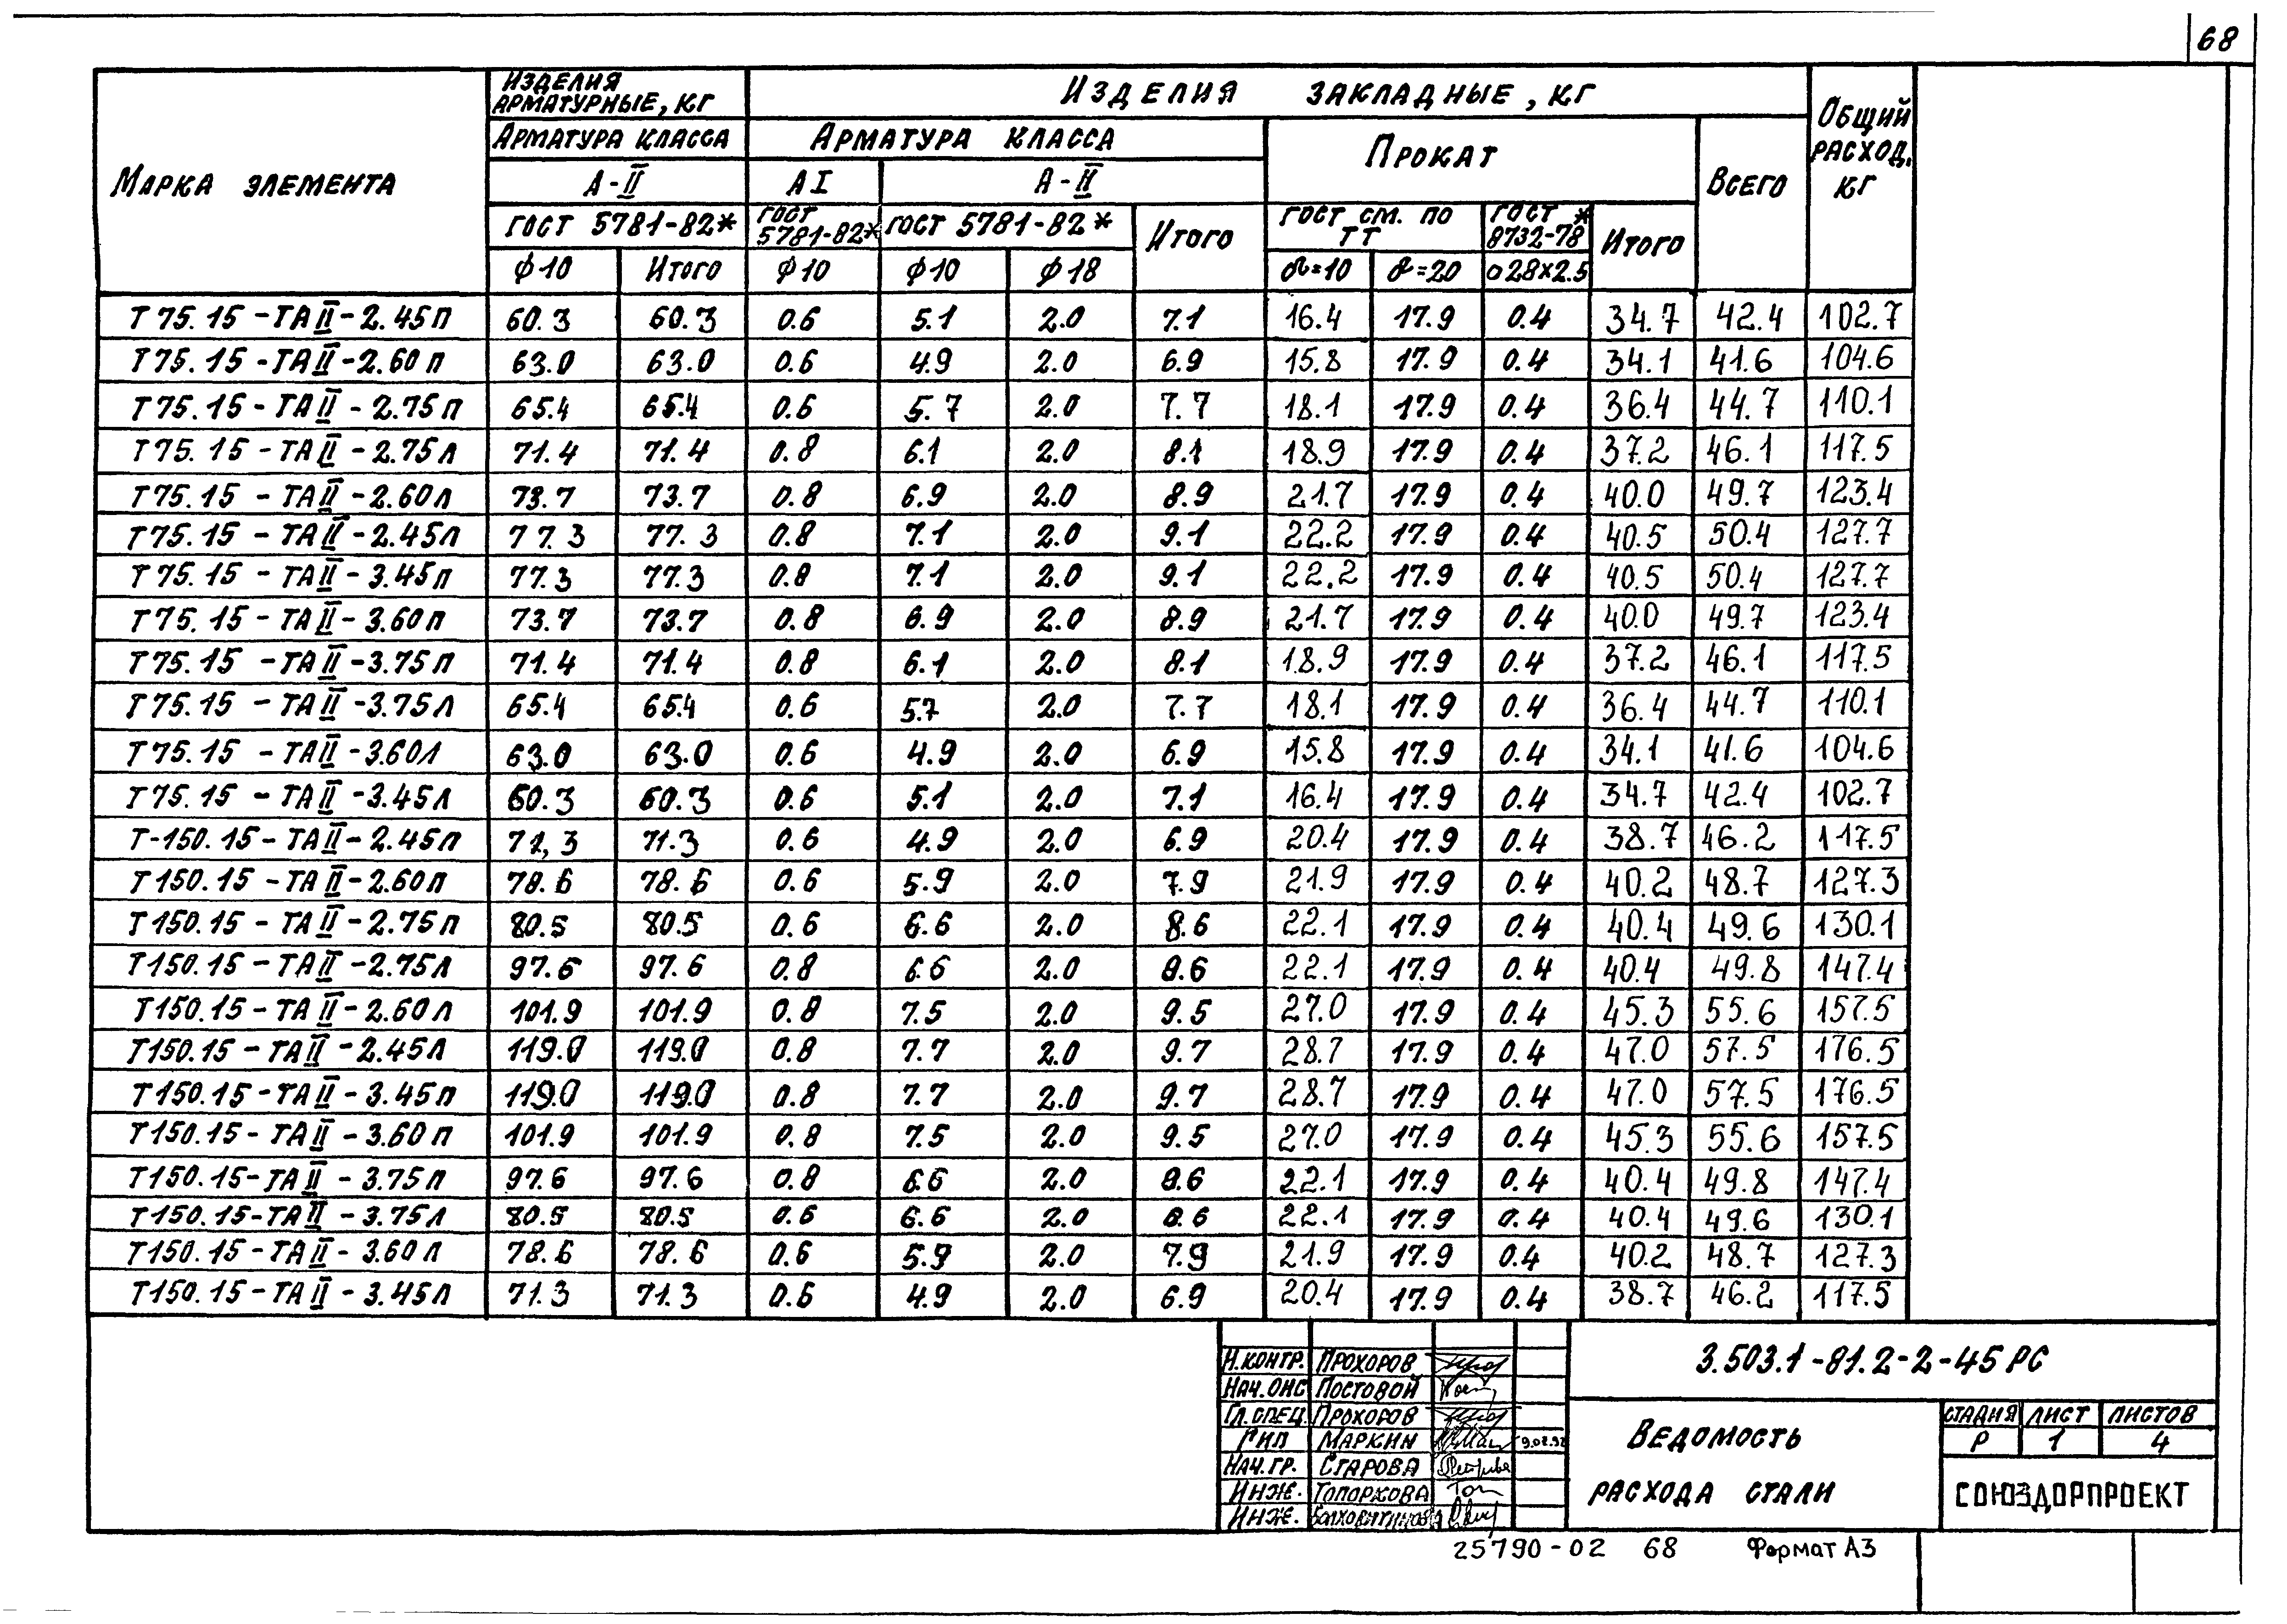 68
Марка элемента | Изделия арматурные, кг | Изделия закладные, кг | Общий расход, кг
Арматура класса | Арматура класса | Прокат | Всего
А-II | АI | А-II
ГОСТ 5781-82* | ГОСТ 5781-82* | ГОСТ 5781-82* | Итого | ГОСТ см. по ТТ | ГОСТ 8732-78* | Итого
ϕ10 | Итого | ϕ10 | ϕ10 | ϕ18 | δ=10 | δ=20 | □28×2.5
Т75.15-ТАII-2.45п 60.3 60.3 0.6 5.1 2.0 7.1 16.4 17.9 0.4 34.7 42.4 102.7
Т75.15-ТАII-2.60п 63.0 63.0 0.6 4.9 2.0 6.9 15.8 17.9 0.4 34.1 41.6 104.6
Т75.15-ТАII-2.75п 65.4 65.4 0.6 5.7 2.0 7.7 18.1 17.9 0.4 36.4 44.7 110.1
Т75.15-ТАII-2.75л 71.4 71.4 0.8 6.1 2.0 8.1 18.9 17.9 0.4 37.2 46.1 117.5
Т75.15-ТАII-2.60л 73.7 73.7 0.8 6.9 2.0 8.9 21.7 17.9 0.4 40.0 49.7 123.4
Т75.15-ТАII-2.45л 77.3 77.3 0.8 7.1 2.0 9.1 22.2 17.9 0.4 40.5 50.4 127.7
Т75.15-ТАII-3.45п 77.3 77.3 0.8 7.1 2.0 9.1 22.2 17.9 0.4 40.5 50.4 127.7
Т75.15-ТАII-3.60п 73.7 73.7 0.8 6.9 2.0 8.9 21.7 17.9 0.4 40.0 49.7 123.4
Т75.15-ТАII-3.75п 71.4 71.4 0.8 6.1 2.0 8.1 18.9 17.9 0.4 37.2 46.1 117.5
Т75.15-ТАII-3.75л 65.4 65.4 0.6 5.7 2.0 7.7 18.1 17.9 0.4 36.4 44.7 110.1
Т75.15-ТАII-3.60л 63.0 63.0 0.6 4.9 2.0 6.9 15.8 17.9 0.4 34.1 41.6 104.6
Т75.15-ТАII-3.45л 60.3 60.3 0.6 5.1 2.0 7.1 16.4 17.9 0.4 34.7 42.4 102.7
Т-150.15-ТАII-2.45п 71,3 71.3 0.6 4.9 2.0 6.9 20.4 17.9 0.4 38.7 46.2 117.5
Т150.15-ТАII-2.60п 78.6 78.6 0.6 5.9 2.0 7.9 21.9 17.9 0.4 40.2 48.7 127.3
Т150.15-ТАII-2.75п 80.5 80.5 0.6 6.6 2.0 8.6 22.1 17.9 0.4 40.4 49.6 130.1
Т150.15-ТАII-2.75л 97.6 97.6 0.8 6.6 2.0 8.6 22.1 17.9 0.4 40.4 49.8 147.4
Т150.15-ТАII-2.60л 101.9 101.9 0.8 7.5 2.0 9.5 27.0 17.9 0.4 45.3 55.6 157.5
Т150.15-ТАII-2.45л 119.0 119.0 0.8 7.7 2.0 9.7 28.7 17.9 0.4 47.0 57.5 176.5
Т150.15-ТАII-3.45п 119.0 119.0 0.8 7.7 2.0 9.7 28.7 17.9 0.4 47.0 57.5 176.5
Т150.15-ТАII-3.60п 101.9 101.9 0.8 7.5 2.0 9.5 27.0 17.9 0.4 45.3 55.6 157.5
Т150.15-ТАII-3.75п 97.6 97.6 0.8 6.6 2.0 8.6 22.1 17.9 0.4 40.4 49.8 147.4
Т150.15-ТАII-3.75л 80.5 80.5 0.6 6.6 2.0 8.6 22.1 17.9 0.4 40.4 49.6 130.1
Т150.15-ТАII-3.60л 78.6 78.6 0.6 5.9 2.0 7.9 21.9 17.9 0.4 40.2 48.7 127.3
Т150.15-ТАII-3.45л 71.3 71.3 0.6 4.9 2.0 6.9 20.4 17.9 0.4 38.7 46.2 117.5
Н.контр. Прохоров
Нач.ОИС Постовой
Гл.спец. Прохоров
ГИП Маркин
Нач.гр. Старова
Инж. Топоркова
Инж.
3.503.1-81.2-2-45 РС
Ведомость
расхода стали
Стадия Лист Листов
Р 1 4
СОЮЗДОРПРОЕКТ
25790-02 68 Формат А3